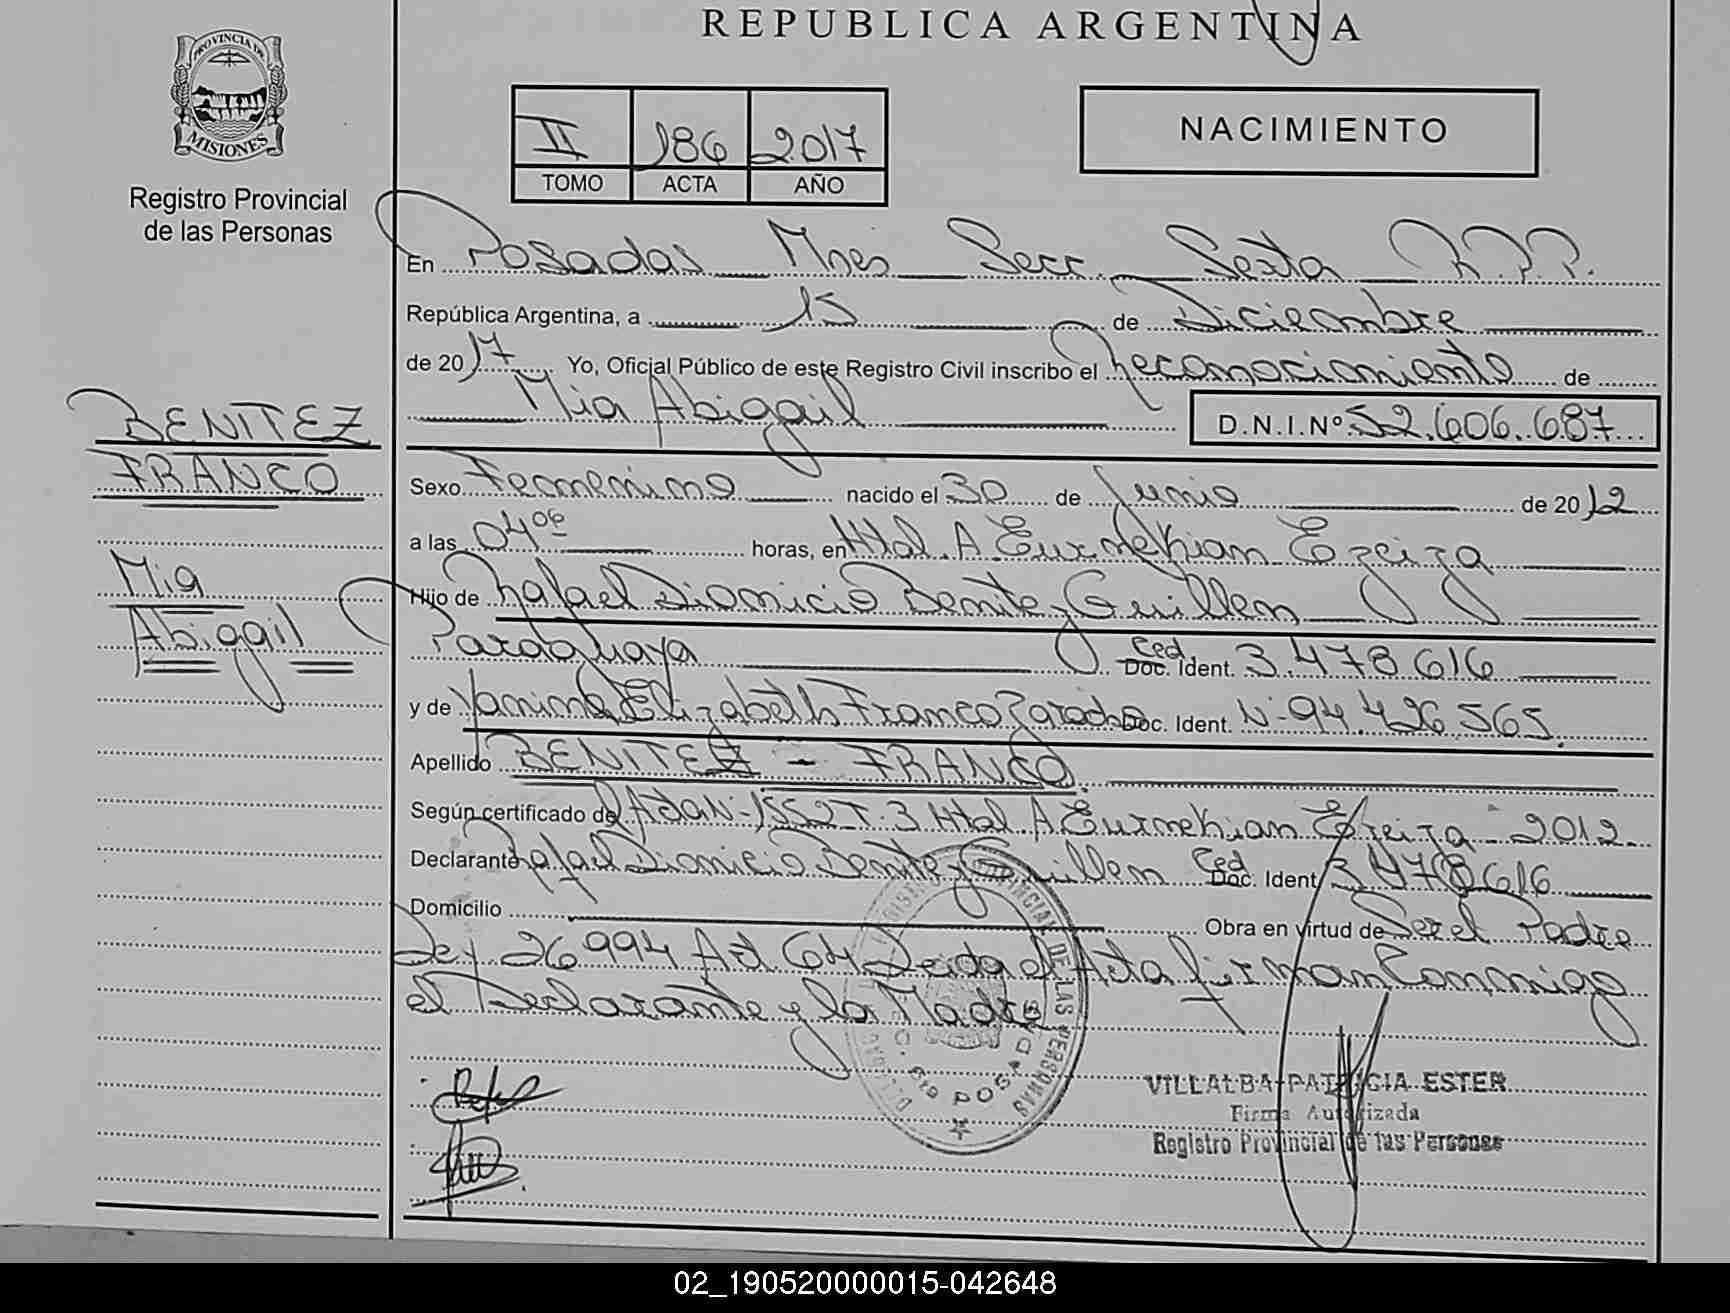 REPUBLICA ARGENTINA
PROVINCIA DE
MISIONES
Registro Provincial
de las Personas
II 186 2017
TOMO ACTA AÑO
NACIMIENTO
En Posadas Mnes Secc. Sexta R.P.P.
República Argentina, a 15 de Diciembre
de 2017 Yo, Oficial Público de este Registro Civil inscribo el Reconocimiento de
Mia Abigail D.N.I.Nº 52.606.687
BENITEZ
FRANCO
Mia
Abigail
Sexo Femenino nacido el 30 de Junio de 2012
a las 04 06 horas, en Htal. A Eurnekian Ezeiza
Hijo de Rafael Dionicio Benitez Guillen
Paraguaya Ced Doc. Ident. 3.478.616
y de Yanina Elizabeth Franco Zarache Doc. Ident. Nº 94.426.565.
Apellido BENITEZ - FRANCO.
Según certificado del Acta Nº 1552 T. 3 Htal A Eurnekian Ezeiza - 2012.
Declarante Rafael Dionicio Benitez Guillen Ced Doc. Ident 3.478.616
Domicilio Obra en virtud de Ser el Padre
Ley 26994 Art. 64 Leida el Acta firman Conmigo
el Declarante y la Madre
DE LAS PERSONAS
POSADAS
VILLALBA PATRICIA ESTER
Firma Autorizada
Registro Provincial de las Personas
02_190520000015-042648